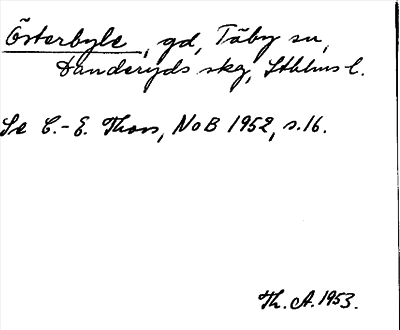 Österbyle, gd, Täby sn,
Danderyds skg, Sthlms l.
Se C.-E. Thors, NoB 1952, s.16.
Th. A. 1953.